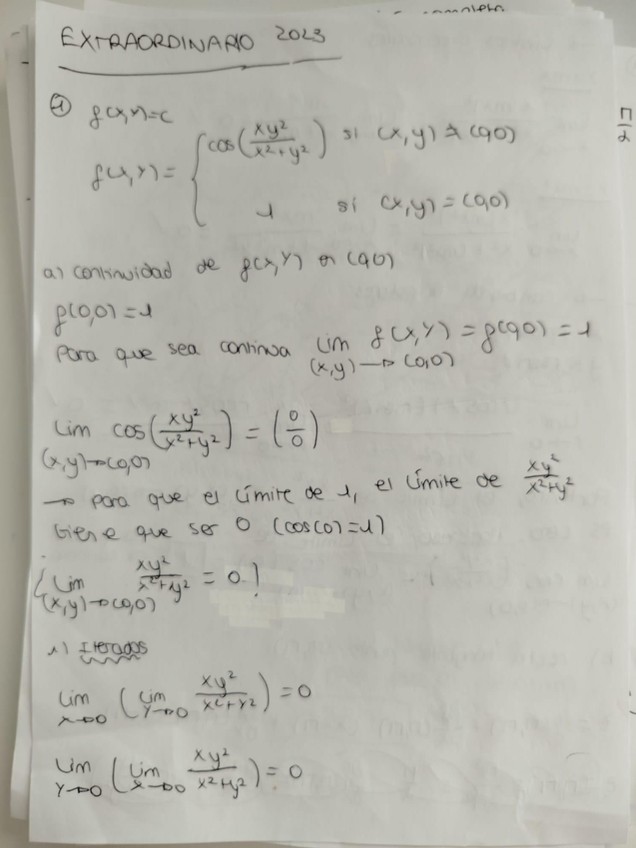 EXTRAORDINARIO 2023
① f(x,y)=c
f(x,y) = { cos(xy²/x²+y²) si (x,y) ≠ (0,0)
1 si (x,y) = (0,0)
a) continuidad de f(x,y) en (0,0)
f(0,0) = 1
Para que sea continua lim f(x,y) = f(0,0) = 1
(x,y) → (0,0)
Lim cos(xy²/x²+y²) = (0/0)
(x,y)→(0,0)
→ para que el límite de 1, el límite de xy²/x²+y²
tiene que ser 0 (cos(0)=1)
¿Lim xy²/x²+y² = 0!
(x,y)→(0,0)
1) Iterados
Lim x→0 (Lim y→0 xy²/x²+y²) = 0
Lim y→0 (Lim x→0 xy²/x²+y²) = 0